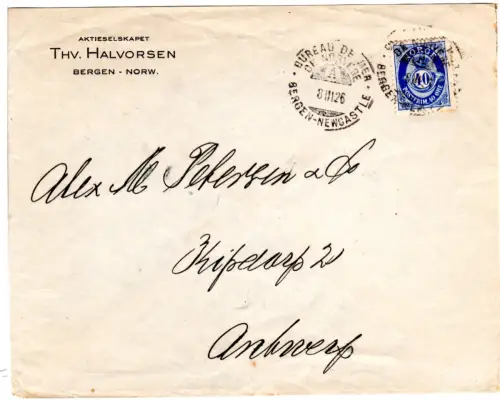 AKTIESELSKAPET
THV. HALVORSEN
BERGEN - NORW.
BUREAU DE MER
DE NORVÈGE
A
8 III 26
BERGEN-NEWCASTLE
NORGE
40
POSTFRIM. 40 ØRE
Alex M Petersen & Co
Kipdorp 2
Antwerp